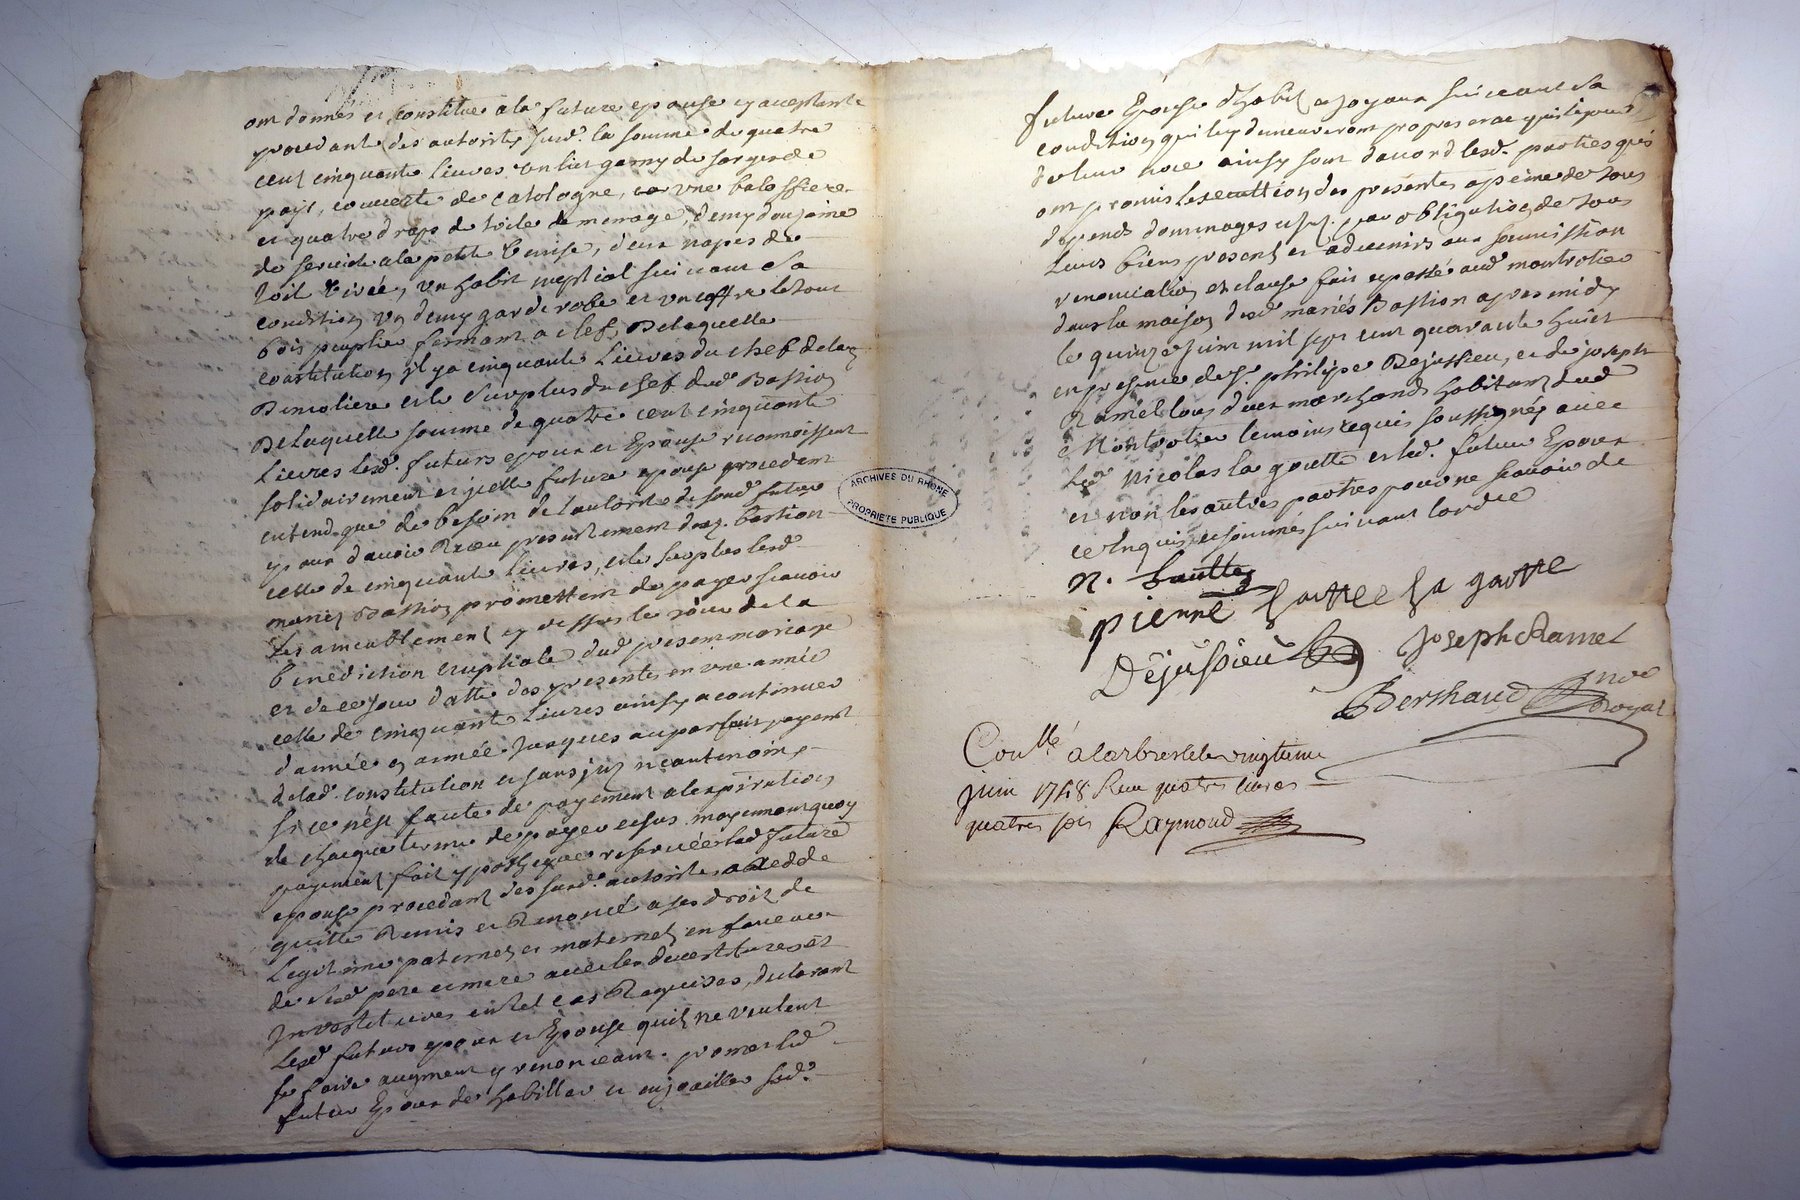 ont donnés et constitué a la future epouse cy acceptante
procedante des autorités susd. la somme de quatre
cent cinquante Livres un lict garny de sarge de
pays, couverte de catologne, une balossiere
et quatre draps de toile de menage, demy douzaine
de serviette a la petite Venise, deux napes de
toile, un habit nuptial suivant sa
condition un demy garderobe et un coffre le tout
bois peuplié fermant a clef, De laquelle
constitution il y a cinquante Livres du chef de la
Demoliere et le surplus du chef dud. Bastion
De laquelle somme de quatre cent cinquante
Livres lesd. futurs epoux et Epouse reconnoissent
solidairement et icelle future epouse procedant
entend que de besoin de l'autorité de sond. futur
epoux d'avoir Receu presentement dud. bastion
celle de cinquante Livres, et le surplus lesd.
mariés Bastion promettent de payer scavoir
Les ameublements cy dessus le jour de la
benediction nuptiale dud. present mariage
et de ce jour datte des presentes en une année
celle de cinquante Livres ainsy a continuer
d'année en année jusques au parfait payement
de lad. constitution et sans neantmoins
si ce n'est faute de payement a l'expiration
de chaque terme de payer moyennant quoy
payement fait ypotheque reservée lad. future
epouse procedant des susd. autorités a cedde
quitté Remis et Renoncé a ses droit de
Legitime paternels et maternels en faveur
de sesd. pere et mere avec les devestitures et
Investitures en tel cas Requises, declarant
lesd. futurs epoux et Epouse quils ne veulent
se faire augment y renonceant. promet led.
futur Epoux de habiller et enjoailler sad.
future Epouse d'habits et joyaux suivant sa
condition qui luy demeureront propres
de leur noce ainsy sont d'accord lesd. parties qui
ont promis Lexecution des presentes a peine de tous
depends dommages par obligation de tous
leurs biens presents et advenirs aux soumission
renonciation et clause fait et passé aud. montrotier
dans la maison desd. mariés Bastion apres midy
le quinze juin mil sept cent quarante huict
en presence de sr. philipe Dejussieu, et de joseph
Ramel tous deux marchands habitants dud.
Montrotier temoins requis soussignés avec
Led. Nicolas la goutte et led. futur Epoux
et non les autres parties pour ne scavoir de
ce enquis et sommés suivant lordce
n. Goutte
pierre goutte la goutte
Dejussieu
Joseph Ramel
Berthaud nore
Royal
Conllé a larbresle le vingtieme
juin 1748 Receu quatre livres
quatre sols Raymond
ARCHIVES DU RHONE
PROPRIETE PUBLIQUE